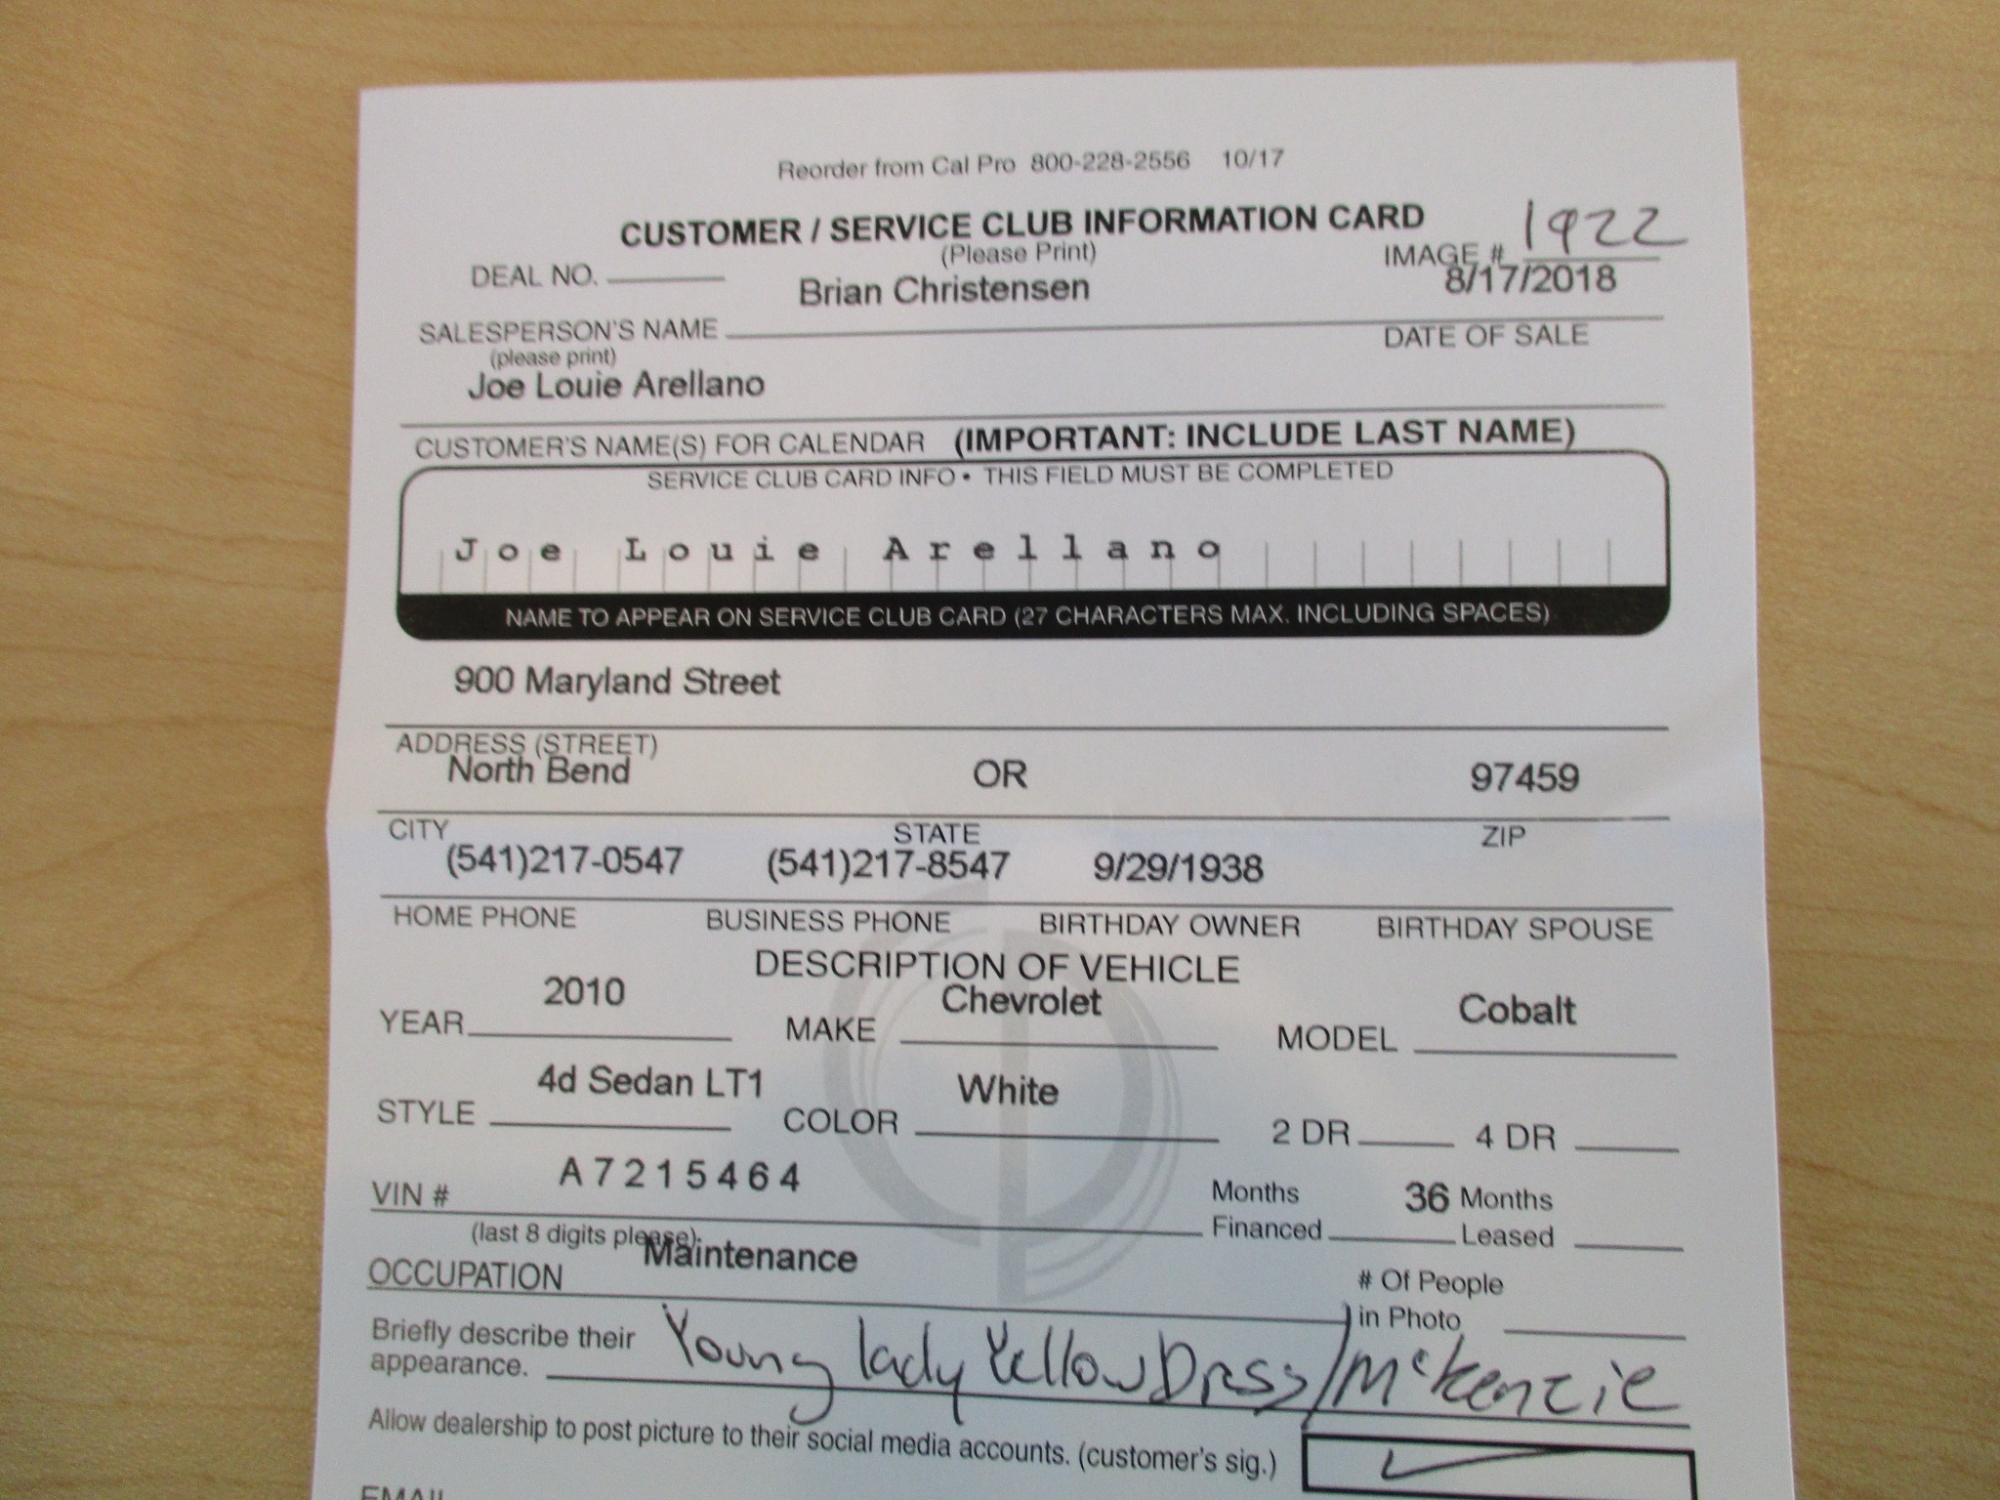 Reorder from Cal Pro 800-228-2556 10/17
CUSTOMER / SERVICE CLUB INFORMATION CARD
(Please Print)
IMAGE # 1922
DEAL NO.
Brian Christensen
8/17/2018
SALESPERSON'S NAME
DATE OF SALE
(please print)
Joe Louie Arellano
CUSTOMER'S NAME(S) FOR CALENDAR (IMPORTANT: INCLUDE LAST NAME)
SERVICE CLUB CARD INFO • THIS FIELD MUST BE COMPLETED
Joe Louie Arellano
NAME TO APPEAR ON SERVICE CLUB CARD (27 CHARACTERS MAX. INCLUDING SPACES)
900 Maryland Street
ADDRESS (STREET)
North Bend OR 97459
CITY STATE ZIP
(541)217-0547 (541)217-8547 9/29/1938
HOME PHONE BUSINESS PHONE BIRTHDAY OWNER BIRTHDAY SPOUSE
DESCRIPTION OF VEHICLE
YEAR 2010 MAKE Chevrolet MODEL Cobalt
STYLE 4d Sedan LT1 COLOR White 2 DR 4 DR
VIN # A7215464
Months 36 Months
(last 8 digits please)
Financed Leased
OCCUPATION Maintenance
# Of People
in Photo
Briefly describe their
appearance. Young lady Yellow Dress/McKenzie
Allow dealership to post picture to their social media accounts. (customer's sig.)
EMAIL